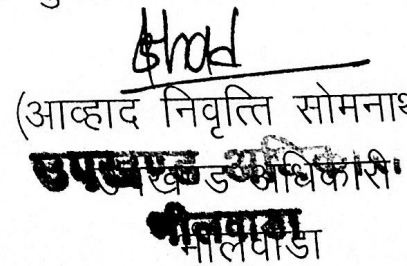 (आव्हाद निवृत्ति सोमनाथ
उपखण्ड अधिकारी
भीलवाडा